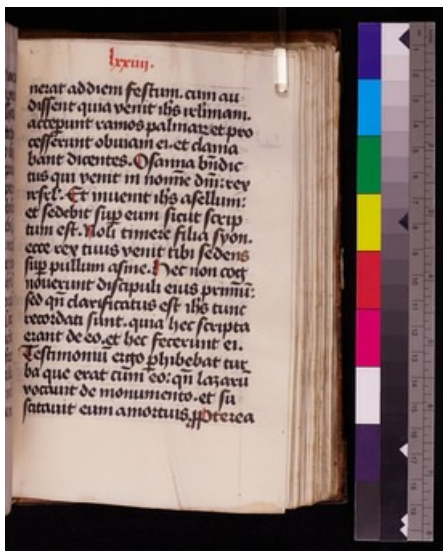 lxxiiij.
nerat ad diem festum. cum au
dissent quia venit ihs irlimam.
acceperunt ramos palmarꝫ et pro
cesserunt obuiam ei. et clama
bant dicentes. Osanna bn̄dic
tus qui venit in nomīe dn̄i: rex
israel. Et inuenit ihs asellum:
et sedebit suꝑ eum sicut scrip
tum est. Noli timere filia syon.
ecce rex tuus venit tibi sedens
suꝑ pullum asine. Hec non cog
nouerunt discipuli eius primū:
sed qn̄ clarificatus est ihs tunc
recordati sunt. quia hec scripta
erant de eo. et hec fecerunt ei.
Testimoniū ergo ꝑhibebat tur
ba que erat cum eo: qn̄ lazarū
vocauit de monumento. et su
scitauit eum a mortuis. ꝓpterea